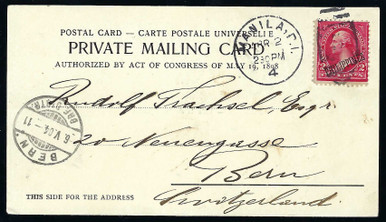 POSTAL CARD — CARTE POSTALE UNIVERSELLE
PRIVATE MAILING CARD
AUTHORIZED BY ACT OF CONGRESS OF MAY 19, 1898
MANILA, P.I.
2
2 30 PM
4
PHILIPPINES
2 CENTS 2
Rudolf Trachsel, Esqr
20 Neuengasse
Bern
Switzerland.
BERN
6.V.04.-11
THIS SIDE FOR THE ADDRESS